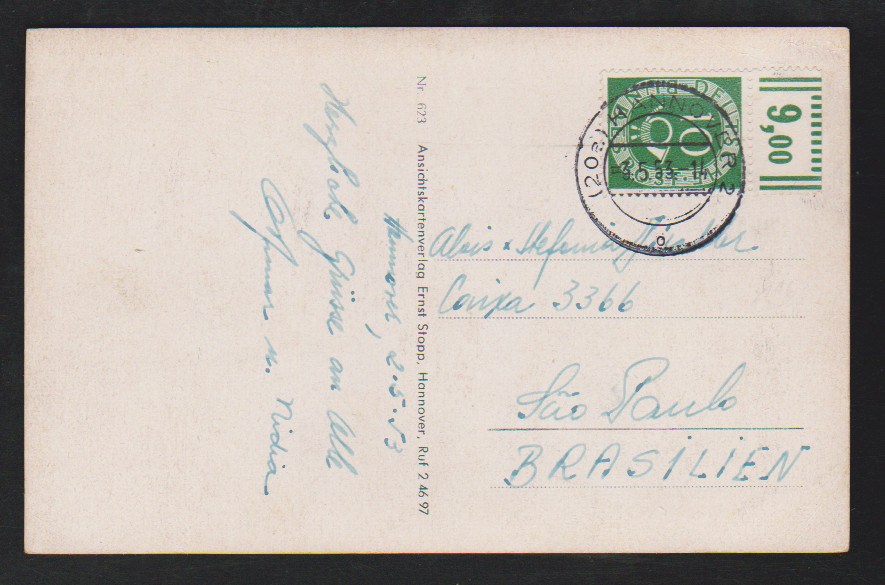 Hannover, 2.5.53
Herzliche Grüsse an Alle
u. Nidia
Nr. 623 Ansichtskartenverlag Ernst Stopp, Hannover, Ruf 2 46 97
DEUTSCHE BUNDESPOST
10
9,00
(20a) HANNOVER 2
5.53
o
Alois & Stefanie
Caixa 3366
São Paulo
BRASILIEN